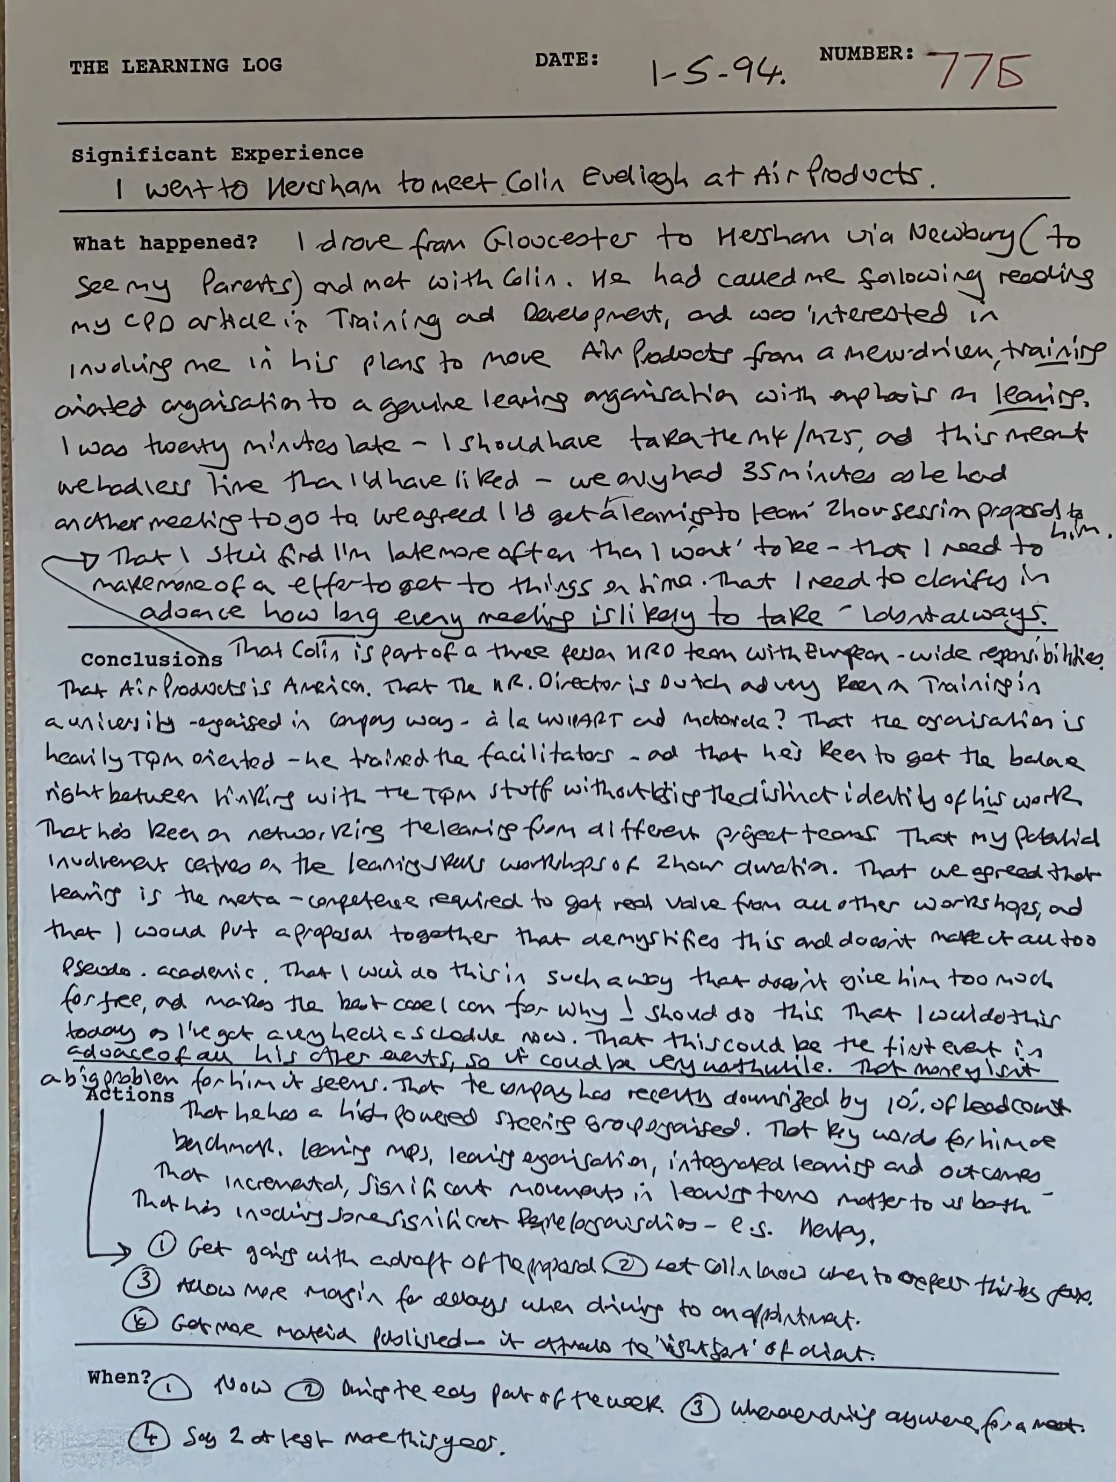 THE LEARNING LOG DATE: 1-5-94. NUMBER: 775
Significant Experience
I went to Hersham to meet Colin Eveliegh at Air Products.
What happened? I drove from Gloucester to Hersham via Newbury (to
see my Parents) and met with Colin. He had called me following reading
my CPD article in Training and Development, and was interested in
involving me in his plans to move Air Products from a menu-driven, training
oriented organisation to a genuine learning organisation with emphasis on learning.
I was twenty minutes late - I should have taken the M4/M25, and this meant
we had less time than I'd have liked - we only had 35 minutes as he had
another meeting to go to. We agreed I'd get a 'learning to learn' 2 hour session proposal to
him.
That I still find I'm late more often than I 'want' to be - that I need to
make more of an effort to get to things on time. That I need to clarify in
advance how long every meeting is likely to take - I don't always.
Conclusions That Colin is part of a three person HRD team with European-wide responsibilities.
That Air Products is American. That the HR. Director is Dutch and very keen on Training in
a university-organised in company way - à la UNIPART and Motorola? That the organisation is
heavily TQM oriented - he trained the facilitators - and that he's keen to get the balance
right between linking with the TQM stuff without losing the distinct identity of his work
That he's keen on networking the learning from different project teams. That my potential
involvement centres on the learning skills workshops of 2 hour duration. That we agreed that
learning is the meta-competence required to get real value from all other workshops, and
that I would put a proposal together that demystifies this and doesn't make it all too
pseudo-academic. That I will do this in such a way that doesn't give him too much
for free, and makes the best case I can for why I should do this. That I would do this
today as I've got a very hectic schedule now. That this could be the first event in
advance of all his other events, so it could be very worthwhile. That money isn't
a big problem for him it seems. That the company has recently downsized by 10% of headcount
Actions That he has a high powered steering group organised. That key words for him are
benchmark, learning maps, learning organisation, integrated learning and outcomes
That incremental, significant movements in learning terms matter to us both -
That he's involving some significant People/organisations - e.g. Henley.
① Get going with a draft of the proposal ② Let Colin know when to expect this by fax.
③ Allow more margin for delays when driving to an appointment.
④ Get more material published - it attracts the 'right sort' of client.
When? ① Now ② During the early part of the week ③ Whenever driving anywhere for a meet.
④ Say 2 at least more this year.